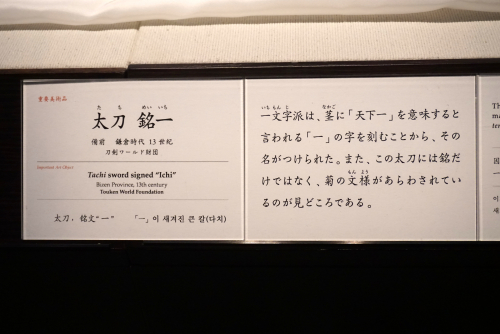 重要美術品
たち めいいち
太刀 銘一
備前 鎌倉時代 13世紀
刀剣ワールド財団
Important Art Object
Tachi sword signed “Ichi”
Bizen Province, 13th century
Touken World Foundation
太刀，铭文“一” 「一」이 새겨진 큰 칼(다치)
いちもんじ なかご
一文字派は、茎に「天下一」を意味すると
言われる「一」の字を刻むことから、その
名がつけられた。また、この太刀には銘だけ
ではなく、菊の文様があらわされてい
もんよう
るのが見どころである。